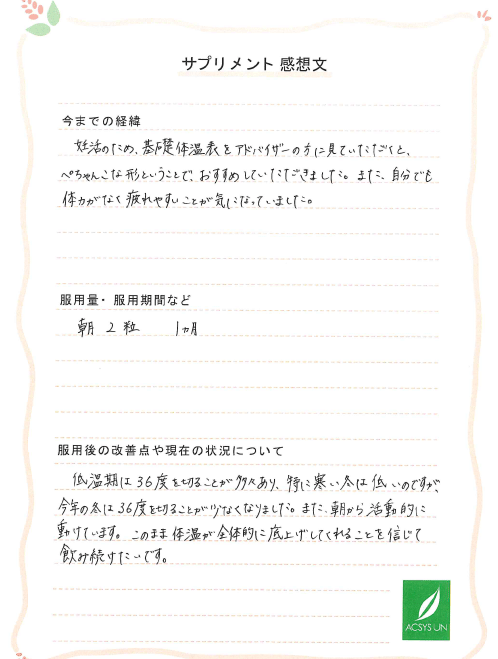 サプリメント 感想文
今までの経緯
妊活のため、基礎体温表をアドバイザーの方に見ていただくと、
ぺちゃんこな形ということで、おすすめしていただきました。また、自分でも
体力がなく疲れやすいことが気になっていました。
服用量・服用期間など
朝 2粒 1ヵ月
服用後の改善点や現在の状況について
低温期は36度を切ることが多々あり、特に寒い冬は低いのですが、
今年の冬は36度を切ることが少なくなりました。また、朝から活動的に
動けています。このまま体温が全体的に底上げしてくれることを信じて
飲み続けたいです。
ACSYS UN